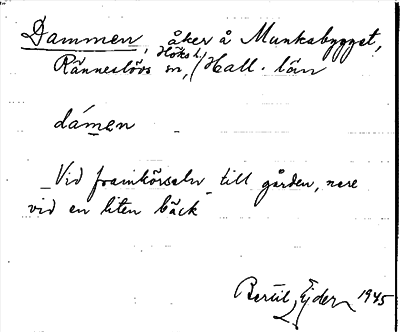 Dammen, åker å Munkabygget,
Ränneslövs sn, Höks h. Hall. län
dámen
Vid framkörseln till gården, nere
vid en liten bäck
Bertil Ejder 1945